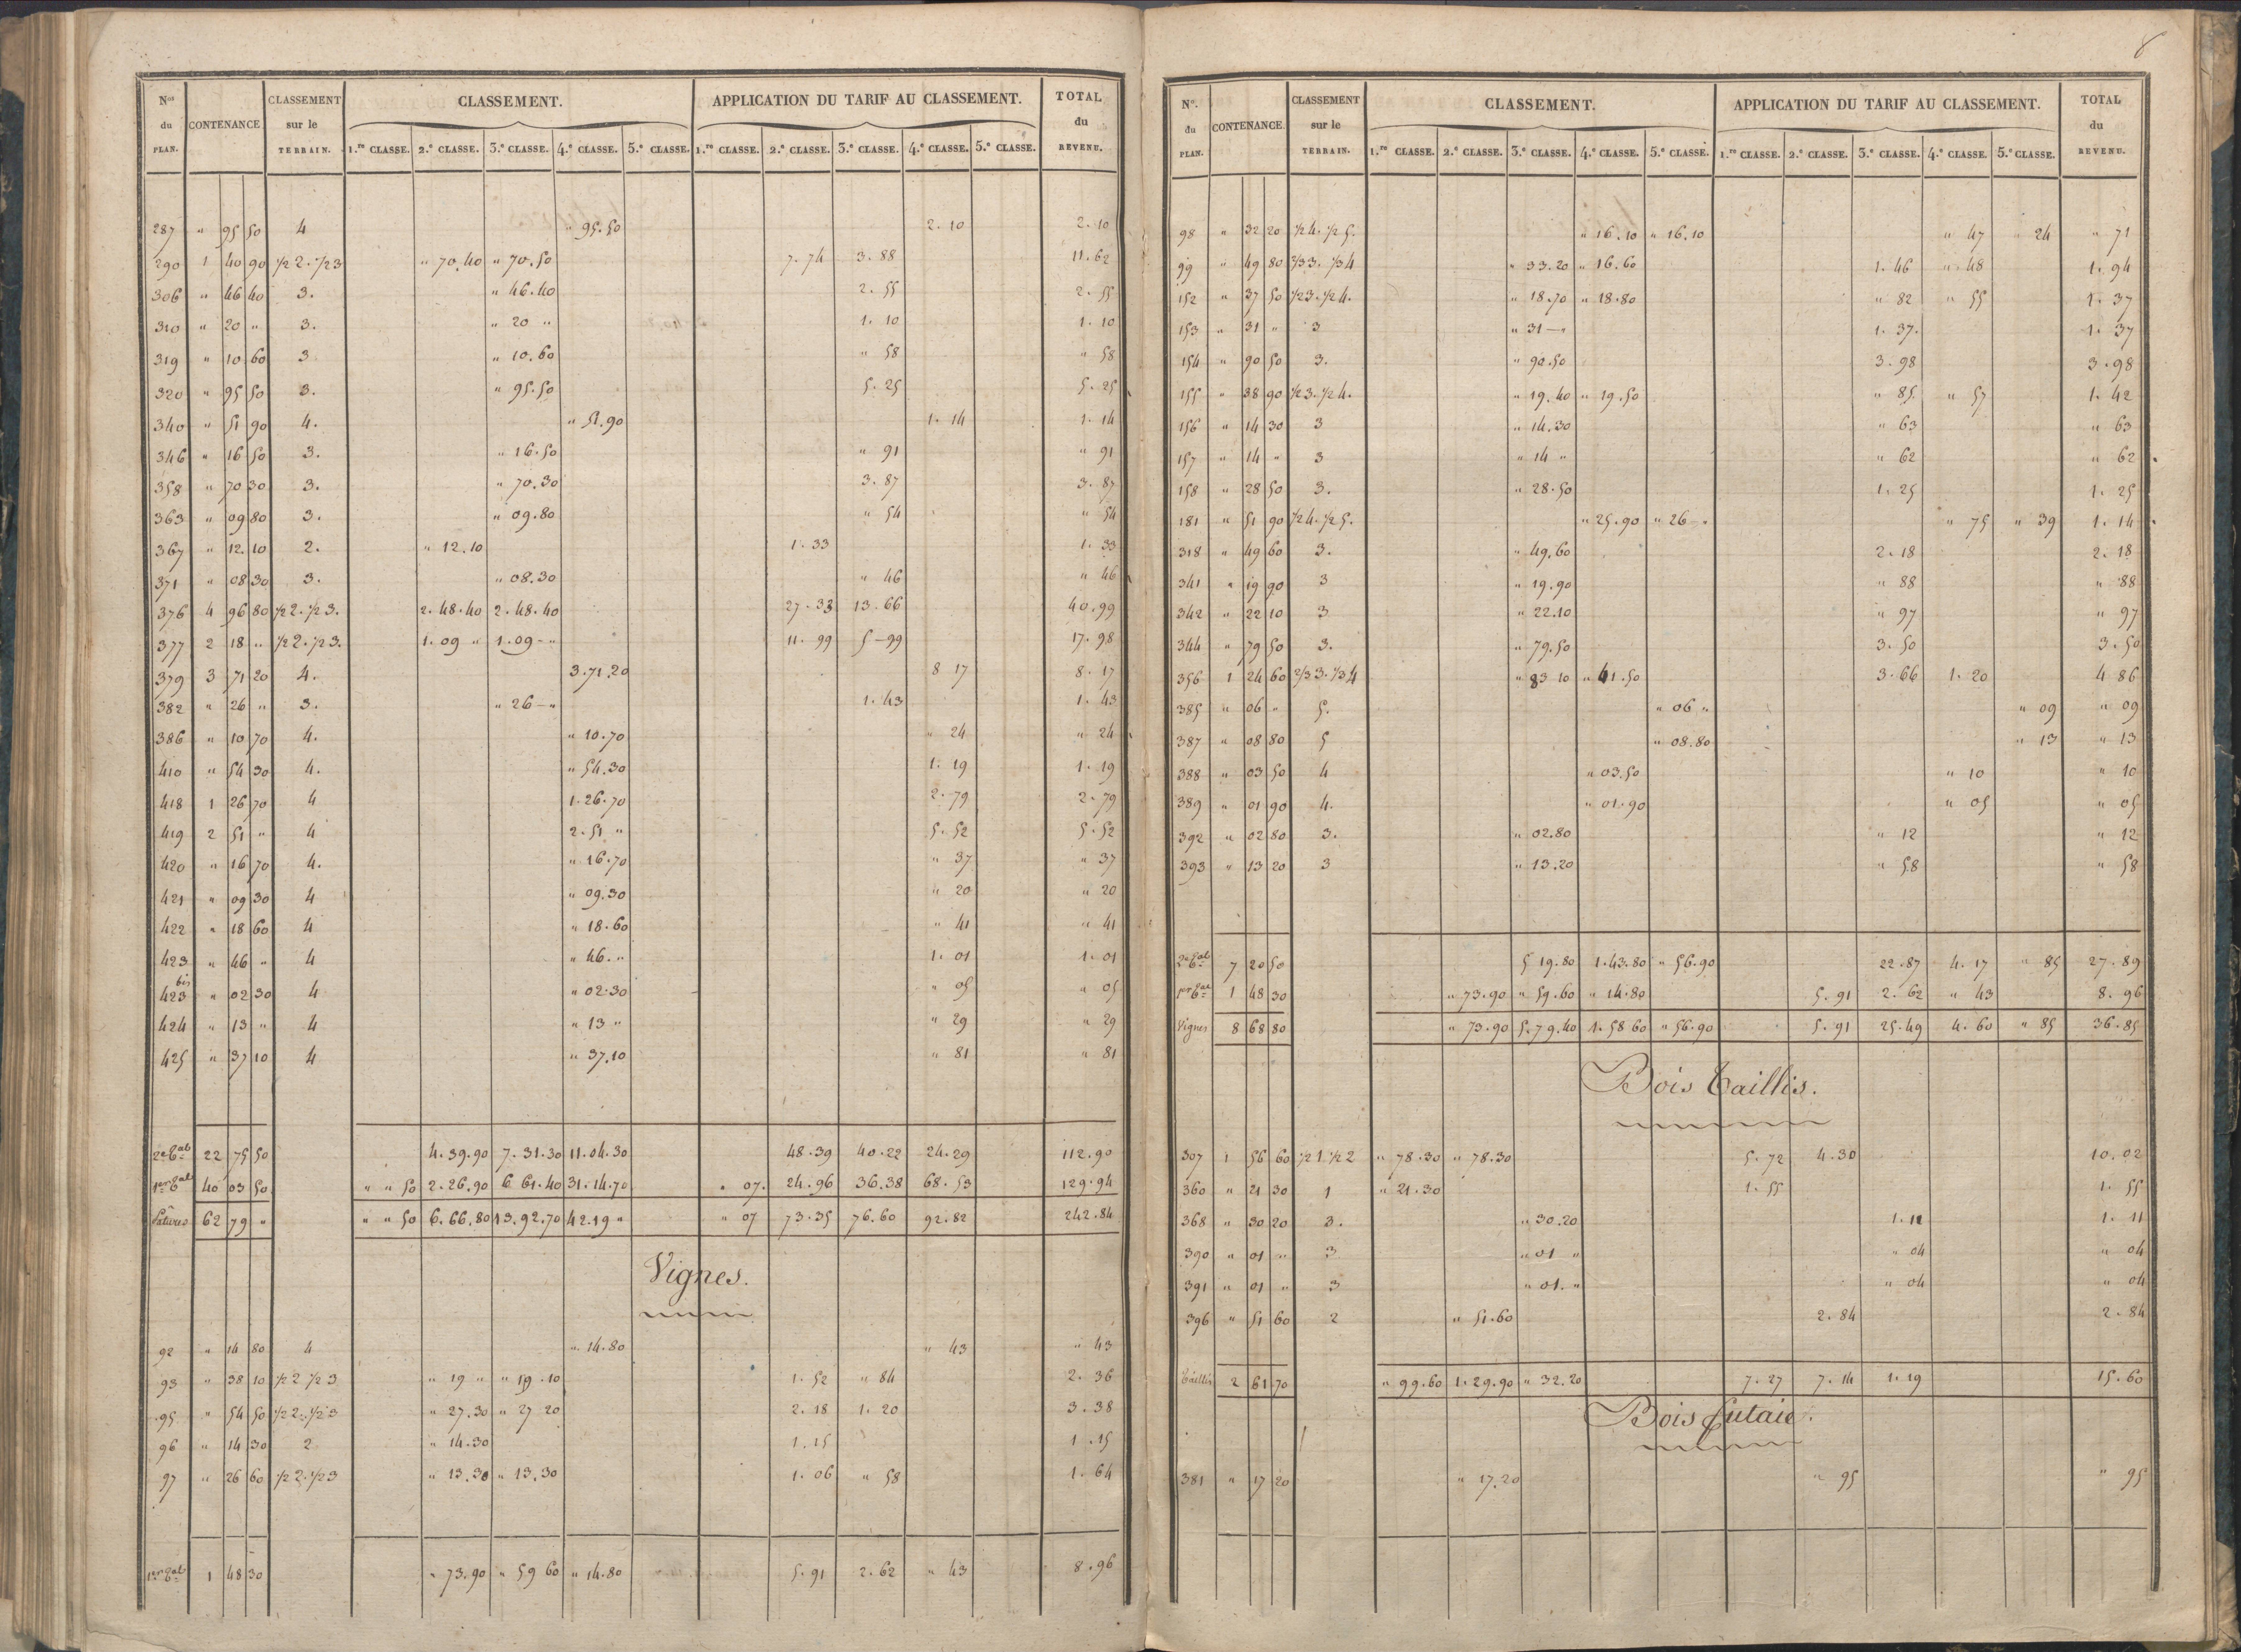 Nos du PLAN. CONTENANCE CLASSEMENT sur le TERRAIN. CLASSEMENT. APPLICATION DU TARIF AU CLASSEMENT. TOTAL du REVENU.
1.re CLASSE. 2.e CLASSE. 3.e CLASSE. 4.e CLASSE. 5.e CLASSE. 1.re CLASSE. 2.e CLASSE. 3.e CLASSE. 4.e CLASSE. 5.e CLASSE.
287 " 95 50 4 " 95.50 2.10 2.10
290 1 40 90 1/2 2. 1/2 3 " 70.40 " 70.50 7.74 3.88 11.62
306 " 46 40 3. " 46.40 2.55 2.55
310 " 20 " 3. " 20 " 1.10 1.10
319 " 10 60 3 " 10.60 " 58 " 58
320 " 95 50 3. " 95.50 5.25 5.25
340 " 51 90 4. " 51.90 1.14 1.14
346 " 16 50 3. " 16.50 " 91 " 91
358 " 70 30 3. " 70.30 3.87 3.87
363 " 09 80 3. " 09.80 " 54 " 54
367 " 12 10 2. " 12.10 1.33 1.33
371 " 08 30 3. " 08.30 " 46 " 46
376 4 96 80 1/2 2. 1/2 3. 2.48.40 2.48.40 27.33 13.66 40.99
377 2 18 " 1/2 2. 1/2 3. 1.09 " 1.09-" 11.99 5-99 17.98
379 3 71 20 4. 3.71.20 8 17 8.17
382 " 26 " 3. " 26-" 1.43 1.43
386 " 10 70 4. " 10.70 " 24 " 24
410 " 54 30 4. " 54.30 1.19 1.19
418 1 26 70 4 1.26.70 2.79 2.79
419 2 51 " 4 2.51 " 5.52 5.52
420 " 16 70 4. " 16.70 " 37 " 37
421 " 09 30 4 " 09.30 " 20 " 20
422 " 18 60 4 " 18.60 " 41 " 41
423 " 46 " 4 " 46. " 1.01 1.01
423 bis " 02 30 4 " 02.30 " 05 " 05
424 " 13 " 4 " 13 " " 29 " 29
425 " 37 10 4 " 37.10 " 81 " 81
2e Tal 22 75 50 4.39.90 7.31.30 11.04.30 48.39 40.22 24.29 112.90
1er Tal 40 03 50 " " 50 2.26.90 6 61.40 31.14.70 " 07. 24.96 36.38 68.53 129.94
Pâtures 62 79 " " " 50 6.66.80 13.92.70 42.19 " " 07 73.35 76.60 92.82 242.84
Vignes.
92 " 14 80 4 " 14.80 " 43 " 43
93 " 38 10 1/2 2 1/2 3 " 19 " " 19.10 1.52 " 84 2.36
95 " 54 50 1/2 2. 1/2 3 " 27.30 " 27 20 2.18 1.20 3.38
96 " 14 30 2 " 14.30 1.15 1.15
97 " 26 60 1/2 2. 1/2 3 " 13.30 " 13.30 1.06 " 58 1.64
1er Tal 1 48 30 " 73.90 " 59 60 " 14.80 5.91 2.62 " 43 8.96
8
No. du PLAN. CONTENANCE. CLASSEMENT sur le TERRAIN. CLASSEMENT. APPLICATION DU TARIF AU CLASSEMENT. TOTAL du REVENU.
1.re CLASSE. 2.e CLASSE. 3.e CLASSE. 4.e CLASSE. 5.e CLASSE. 1.re CLASSE. 2.e CLASSE. 3.e CLASSE. 4.e CLASSE. 5.e CLASSE.
98 " 32 20 1/2 4. 1/2 5. " 16.10 " 16.10 " 47 " 24 " 71
99 " 49 80 2/3 3. 1/3 4 " 33.20 " 16.60 1.46 " 48 1.94
152 " 37 50 1/2 3. 1/2 4. " 18.70 " 18.80 " 82 " 55 1.37
153 " 31 " 3 " 31-" 1.37. 1.37
154 " 90 50 3. " 90.50 3.98 3.98
155 " 38 90 1/2 3. 1/2 4. " 19.40 " 19.50 " 85 " 57 1.42
156 " 14 30 3 " 14.30 " 63 " 63
157 " 14 " 3 " 14 " " 62 " 62
158 " 28 50 3. " 28.50 1.25 1.25
181 " 51 90 1/2 4. 1/2 5. " 25.90 " 26-" " 75 " 39 1.14
318 " 49 60 3. " 49.60 2.18 2.18
341 " 19 90 3 " 19.90 " 88 " 88
342 " 22 10 3 " 22.10 " 97 " 97
344 " 79 50 3. " 79.50 3.50 3.50
356 1 24 60 2/3 3. 1/3 4 " 83 10 " 41.50 3.66 1.20 4 86
385 " 06 " 5. " 06 " " 09 " 09
387 " 08 80 5 " 08.80 " 13 " 13
388 " 03 50 4 " 03.50 " 10 " 10
389 " 01 90 4. " 01.90 " 05 " 05
392 " 02 80 3. " 02.80 " 12 " 12
393 " 13 20 3 " 13.20 " 58 " 58
2e Tal 7 20 50 5 19.80 1.43.80 " 56.90 22.87 4.17 " 85 27.89
1er Tal 1 48 30 " 73.90 " 59.60 " 14.80 5.91 2.62 " 43 8.96
Vignes 8 68 80 " 73.90 5.79.40 1.58 60 " 56.90 5.91 25.49 4.60 " 85 36.85
Bois Taillis.
307 1 56 60 1/2 1 1/2 2 " 78.30 " 78.30 5.72 4.30 10.02
360 " 21 30 1 " 21.30 1.55 1.55
368 " 30 20 3. " 30.20 1.11 1.11
390 " 01 " 3 " 01 " " 04 " 04
391 " 01 " 3 " 01. " " 04 " 04
396 " 51 60 2 " 51.60 2.84 2.84
Taillis 2 61 70 " 99.60 1.29.90 " 32.20 7.27 7.14 1.19 15.60
Bois futaie.
381 " 17 20 " 17.20 " 95 " 95